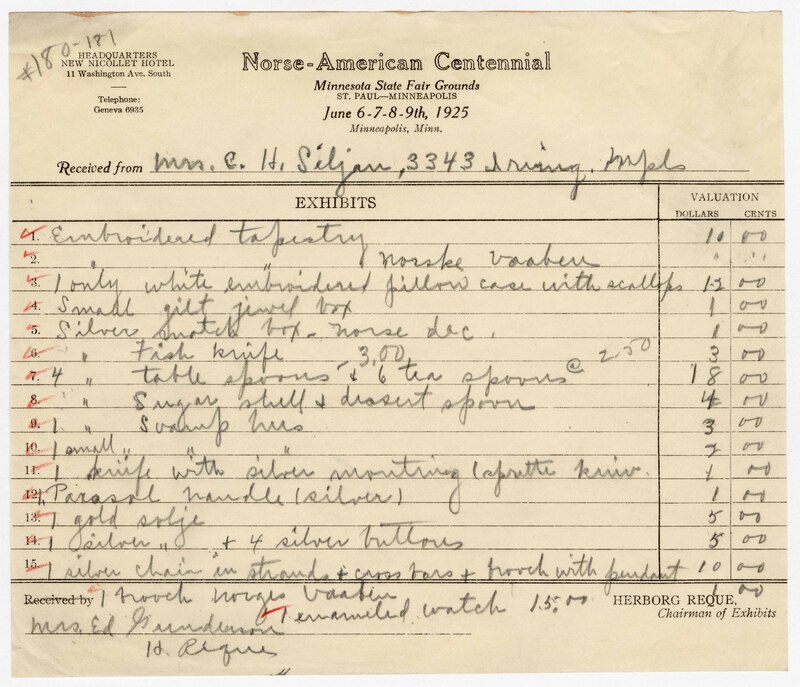 #180-181
HEADQUARTERS
NEW NICOLLET HOTEL
11 Washington Ave. South
Telephone:
Geneva 6935
Norse-American Centennial
Minnesota State Fair Grounds
ST. PAUL—MINNEAPOLIS
June 6-7-8-9th, 1925
Minneapolis, Minn.
Received from Mrs. C. H. Siljan, 3343 Irving. Mpls
EXHIBITS VALUATION
DOLLARS CENTS
1. Embroidered tapestry 10 00
2. " " Norske Vaaben " "
3. 1 only white embroidered pillow case with scallops 12 00
4. Small gilt jewel box 1 00
5. Silver snatch box - Norse dec. 1 00
6. " Fish knife 3 00
7. 4 " table spoons 3.00 & 6 tea spoons @ 2.50 18 00
8. " Sugar shell & dessert spoon 4 00
9. 1 " Svamp hus 3 00
10. 1 small " " 2 00
11. 1 knife with silver mounting (sprette kniv. 1 00
12. 1 Parasol handle (silver) 1 00
13. 1 gold solje 5 00
14. 1 silver " + 4 silver buttons 5 00
15. 1 silver chain in strands & cross bars & brooch with pendant 10 00
Received by 1 brooch Norges Vaaben 1 00
1 enameled watch 15.00
HERBORG REQUE,
Chairman of Exhibits
Mrs. Ed Gunderson
H. Reque